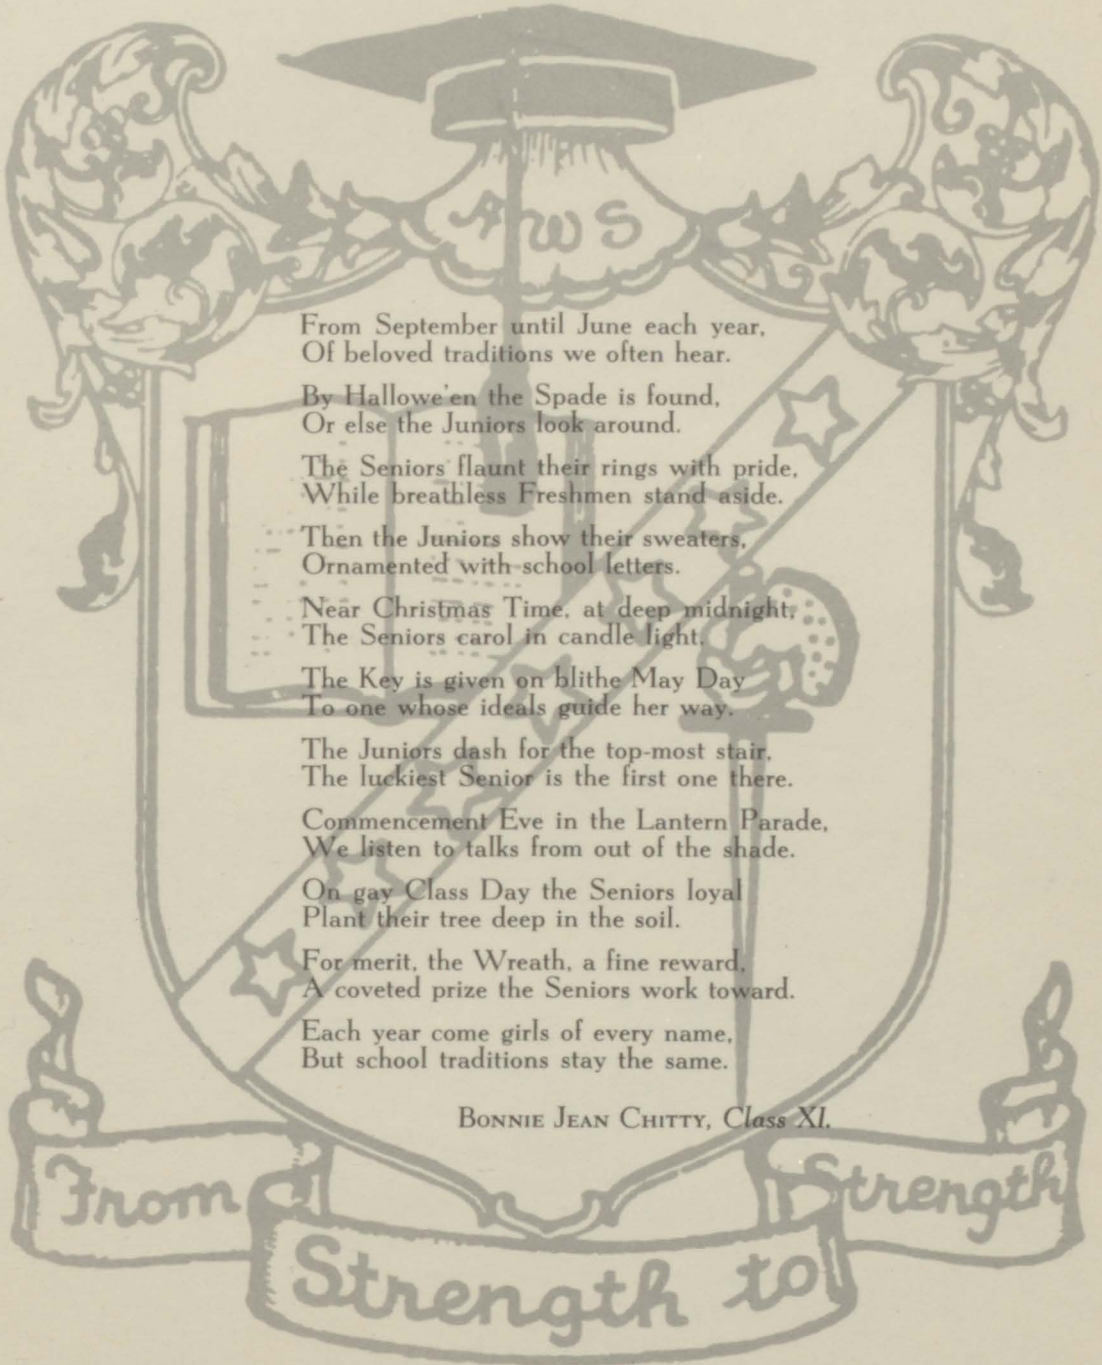 AWS
From September until June each year,
Of beloved traditions we often hear.
By Hallowe'en the Spade is found,
Or else the Juniors look around.
The Seniors flaunt their rings with pride,
While breathless Freshmen stand aside.
Then the Juniors show their sweaters,
Ornamented with school letters.
Near Christmas Time, at deep midnight,
The Seniors carol in candle light.
The Key is given on blithe May Day
To one whose ideals guide her way.
The Juniors dash for the top-most stair,
The luckiest Senior is the first one there.
Commencement Eve in the Lantern Parade,
We listen to talks from out of the shade.
On gay Class Day the Seniors loyal
Plant their tree deep in the soil.
For merit, the Wreath, a fine reward,
A coveted prize the Seniors work toward.
Each year come girls of every name,
But school traditions stay the same.
BONNIE JEAN CHITTY, Class XI.
From
Strength to
Strength